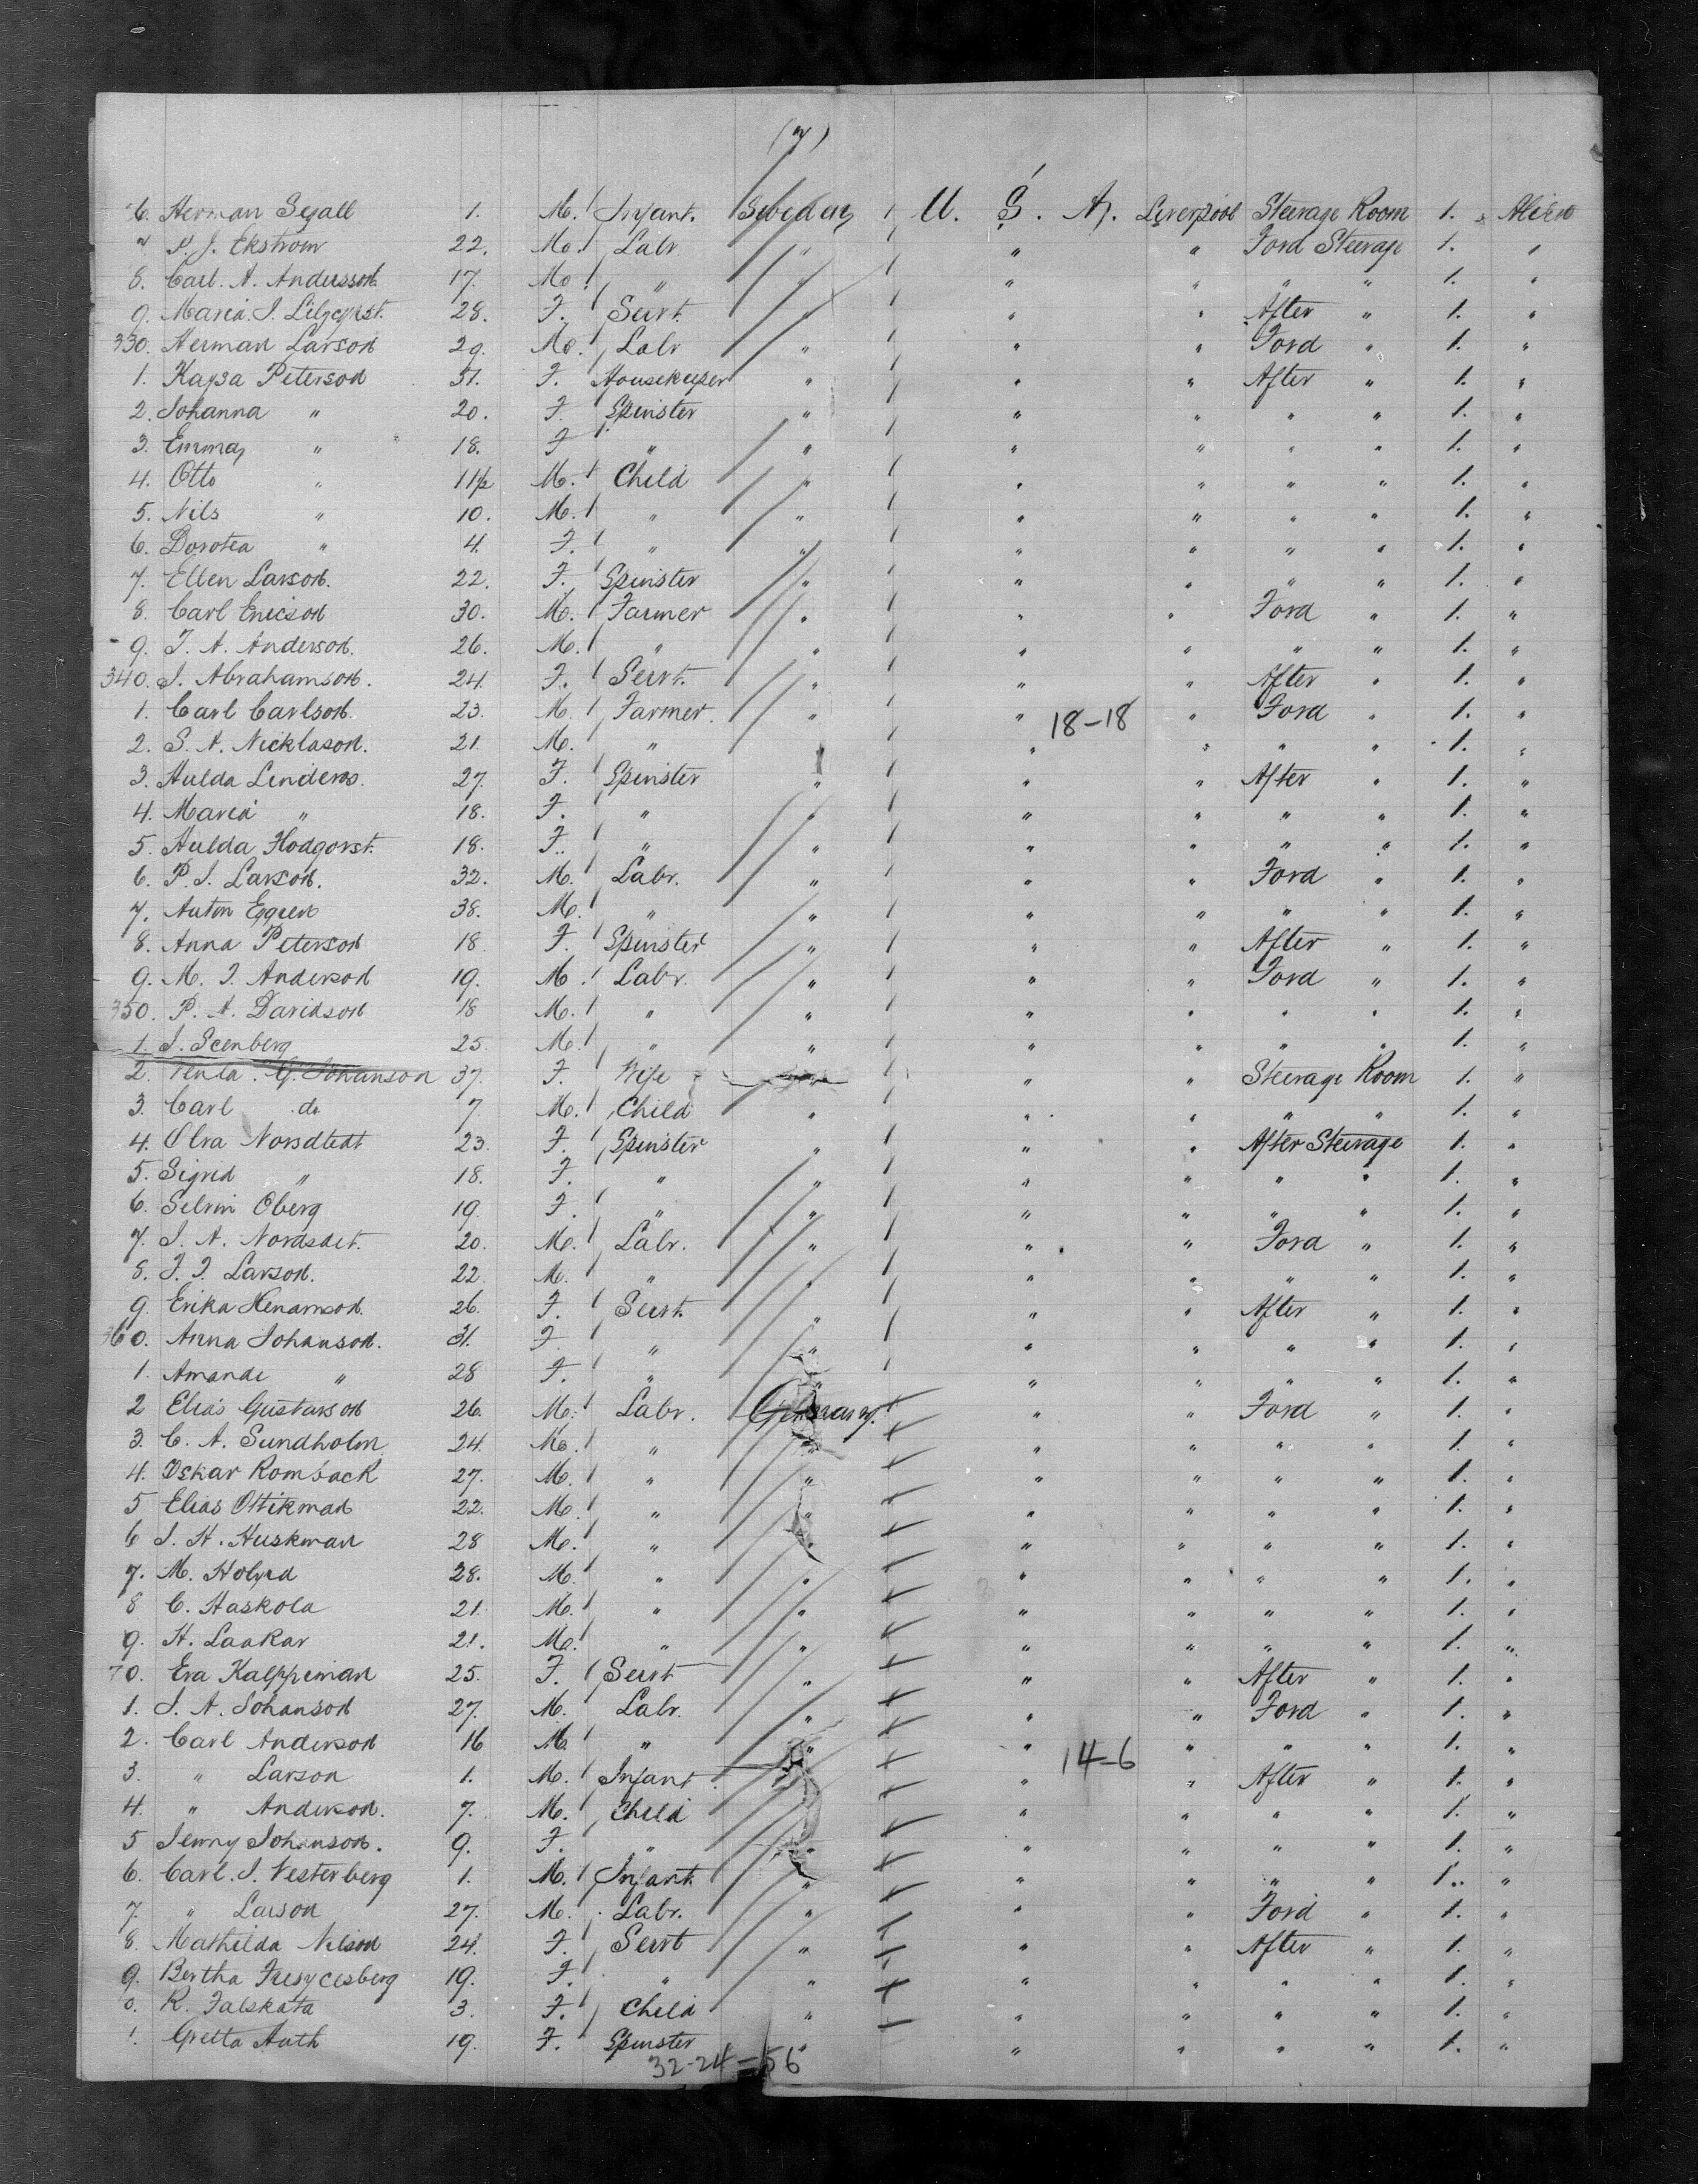 (7)
6. Herman Segall 1. M. Infant. Sweden U. S. A. Liverpool Steerage Room 1. Alien
7 P. J. Ekstrom 22. M. Labr. " " " Ford Steerage 1. "
8. Carl. A. Andersson 17. M. " " " " " " 1. "
9. Maria. I. 28. F. Servt. " " " After " 1. "
330. Herman Larson 29. M. Labr " " " Ford " 1. "
1. Kaysa Peterson 51. F. Housekeeper " " " After " 1. "
2. Johanna " 20. F. Spinster " " " " " 1. "
3. Emma " 18. F " " " " " " 1. "
4. Otto " 11½ M. Child " " " " " 1. "
5. Nils " 10. M. " " " " " " 1. "
6. Dorotea " 4. F. " " " " " " 1. "
7. Ellen Larson. 22. F. Spinster " " " " " 1. "
8. Carl Ericson 30. M. Farmer " " " Ford " 1. "
9. J. A. Anderson. 26. M. " " " " " " 1. "
340. J. Abrahamson. 24. F. Servt. " " " After " 1. "
1. Carl Carlson. 23. M. Farmer. " " 18-18 " Ford " 1. "
2. S. A. Nicklason. 21. M. " " " " " " 1. "
3. Hulda 27. F. Spinster " " " After " 1. "
4. Maria " 18. F. " " " " " " 1. "
5. Hulda 18. F. " " " " " " 1. "
6. P. J. Larson. 32. M. Labr. " " " Ford " 1. "
7. Anton Eggen 38. M. " " " " " " 1. "
8. Anna Peterson 18 F. Spinster " " " After " 1. "
9. M. J. Anderson 19. M. Labr. " " " Ford " 1. "
350. P. A. Davidson 18 M. " " " " " " 1. "
1. J. Scenberg 25. M. " " " " " " 1. "
2. G. Johanson 37. F. Wife " " " Steerage Room 1. "
3. Carl do 7. M. Child " " " " " 1. "
4. Norsdtedt 23. F. Spinster " " " After Steerage 1. "
5. Sigrid " 18. F. " " " " " " 1. "
6. Selvin Oberg 19. F. " " " " " " 1. "
7. J. A. Nordsdet. 20. M. Labr. " " " Ford " 1. "
8. J. J. Larson. 22. M. " " " " " " 1. "
9. Erika Henamson. 26. F. Servt. " " " After " 1. "
360. Anna Johanson. 31. F. " " " " " " 1. "
1. Amande " 28 F. " " " " " " 1. "
2 Elias Gustavson 26. M. Labr. Germany. " " Ford " 1. "
3. C. A. Sundholm 24. M. " " " " " " 1. "
4. Oskar Romback 27. M. " " " " " " 1. "
5 Elias Ottikman 22. M. " " " " " " 1. "
6 J. H. Huskman 28 M. " " " " " " 1. "
7. M. 28. M. " " " " " " 1. "
8 C. Haskola 21. M. " " " " " " 1. "
9. H. Laakar 21. M. " " " " " " 1. "
70. Eva Kalppinan 25. F. Servt " " " After " 1. "
1. J. A. Johanson 27. M. Labr. " " " Ford " 1. "
2. Carl Anderson 16 M. " " " " " " 1. "
3. " Larson 1. M. Infant. " " 14-6 " After " 1. "
4. " Anderson. 7. M. Child " " " " " 1. "
5 Jenny Johanson. 9. F. " " " " " " 1. "
6. Carl. J. Vesterberg 1. M. Infant. " " " " " 1. "
7. " Larson 27. M. Labr. " " " Ford " 1. "
8. Mathilda Nelson 24. F. Servt " " " After " 1. "
9. Bertha 19. F. " " " " " " 1. "
0. R. Falskata 3. F. Child " " " " " 1. "
1. Gretta Auth 19. F. Spinster " " " " " 1. "
32-24=56